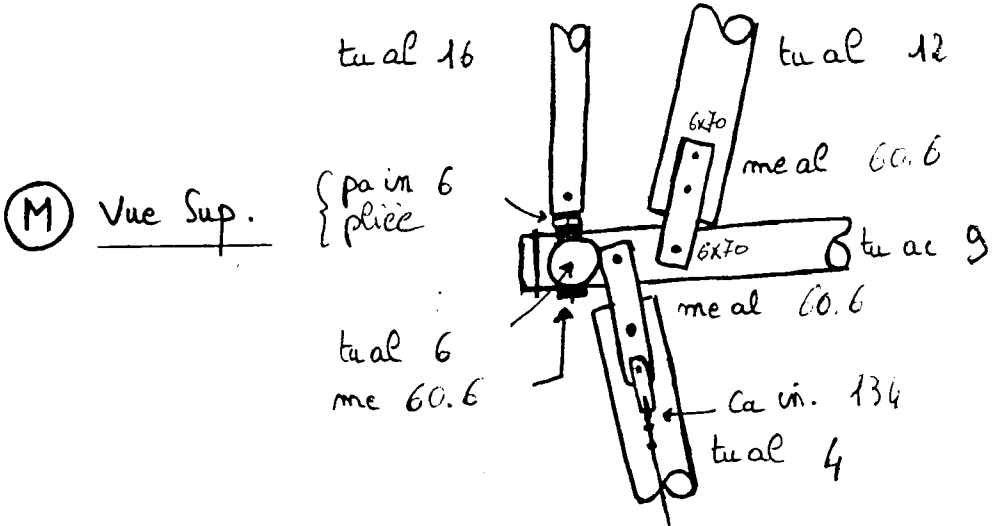 tu al 16
tu al 12
6x70
me al 60.6
M Vue Sup.
{ pa in 6
pliée
6x70
tu ac 9
me al 60.6
tu al 6
me 60.6
Ca in. 134
tu al 4